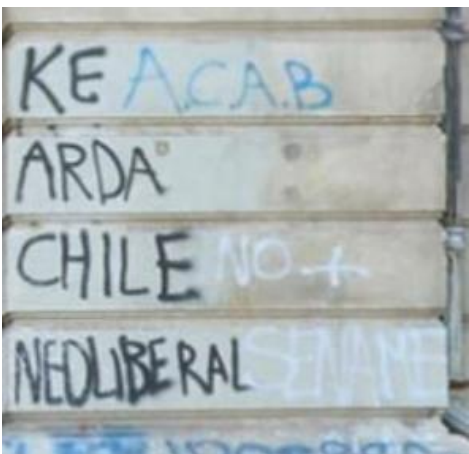 KE A.C.A.B
ARDA
CHILE NO +
NEOLIBERAL SENAME